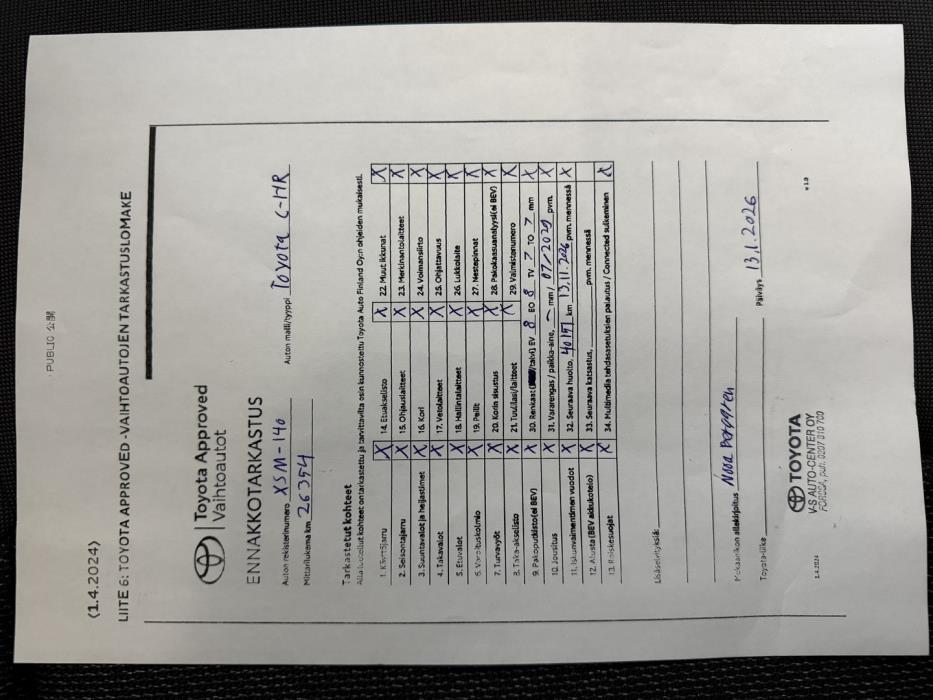 PUBLIC 公開
(1.4.2024)
LIITE 6: TOYOTA APPROVED -VAIHTOAUTOJEN TARKASTUSLOMAKE
Toyota Approved
Vaihtoautot
ENNAKKOTARKASTUS
Auton rekisterinumero XSM-140 Auton malli/tyyppi Toyota C-HR
Mittarilukema km 26354
Tarkastetut kohteet
Alla luetellut kohteet on tarkastettu ja tarvittavilta osin kunnostettu Toyota Auto Finland Oy:n ohjeiden mukaisesti.
1. Käyttöjarru X 14. Etuakselisto X 22. Muut ikkunat X
2. Seisontajarru X 15. Ohjauslaitteet X 23. Merkinantolaitteet X
3. Suuntavalot ja heijastimet X 16. Kori X 24. Voimansiirto X
4. Takavalot X 17. Vetolaitteet X 25. Ohjattavuus X
5. Etuvalot X 18. Hallintalaitteet X 26. Lukkolaite X
6. Varoituskolmio X 19. Peilit X 27. Nestepinnat X
7. Turvavyöt X 20. Korin sisustus X 28. Pakokaasuanalyysi (ei BEV) X
8. Taka-akselisto X 21. Tuulilasi/laitteet X 29. Valmistenumero X
9. Pakoputkisto (ei BEV) X 30. Renkaat ( /talvi) EV 8 EO 8 TV 7 TO 7 mm X
10. Jousitus X 31. Vararengas / paikka-aine, – mm / 07/2029 pvm. X
11. Iskunvaimentimen vuodot X 32. Seuraava huolto, km 13.11.2026 pvm. mennessä X
12. Alusta (BEV akkukotelo) X 33. Seuraava katsastus, pvm. mennessä
13. Roiskesuojat X 34. Multimedia tehdasasetuksien palautus / Connected sulkeminen X
Lisäselvityksiä:
Mekaanikon allekirjoitus Noora
Toyota-liike Päiväys 13.1.2026
TOYOTA
V-S AUTO-CENTER OY
FORSSA, puh. 0207 010 700
1.4.2024 v 1.0